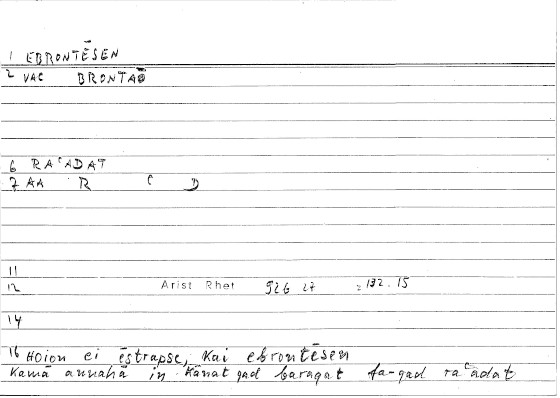 1 EBRONTĒSEN
2 VAC BRONTAŌ
6 RAʿADAT
7 AA R ʿ D
11
12 Arist Rhet 926 27 = 132.15
14
16 Hoion ei ēstrapse, kai ebrontēsen
Kamā annahā in kānat qad baraqat fa-qad raʿadat